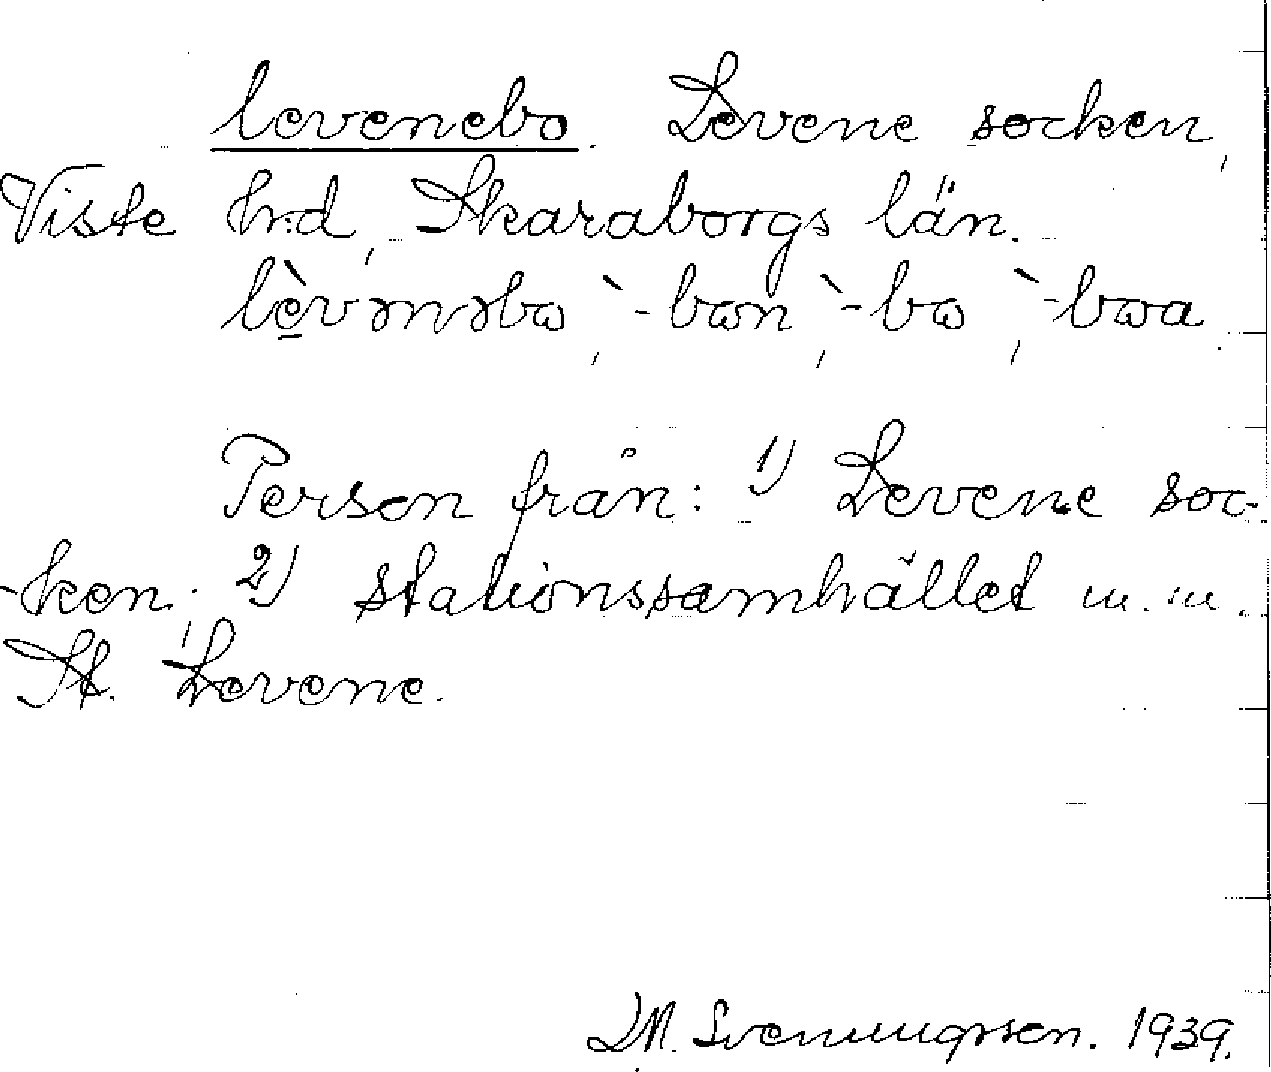 levenebo. Levene socken,
Viste hrd, Skaraborgs län.
lèvənəbω, `-bωn, `-bω, `-bωa.
Person från: 1) Levene soc-
ken; 2) stationssamhället m.m.
St. Levene.
D.M. Svenungsson. 1939.